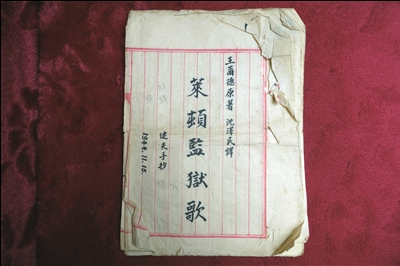 王爾德原著 沈澤民譯
萊頓監獄歌
夫手抄
1944.11.15.